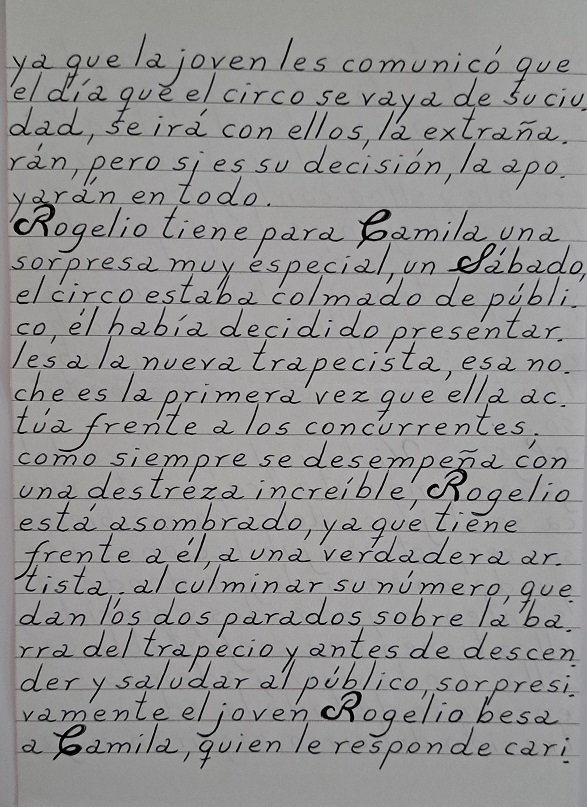 ya que la joven les comunicó que
el día que el circo se vaya de su ciu
dad, se irá con ellos, la extraña.
rán, pero si es su decisión, la apo.
yarán en todo.
Rogelio tiene para Camila una
sorpresa muy especial, un Sábado,
el circo estaba colmado de públi.
co, él había decidido presentar.
les a la nueva trapecista, esa no.
che es la primera vez que ella ac.
túa frente a los concurrentes,
como siempre se desempeña con
una destreza increíble, Rogelio
está asombrado, ya que tiene
frente a él, a una verdadera ar.
tista, al culminar su número, que.
dan los dos parados sobre la ba.
rra del trapecio y antes de descen.
der y saludar al público, sorpresi.
vamente el joven Rogelio besa
a Camila, quien le responde cari.